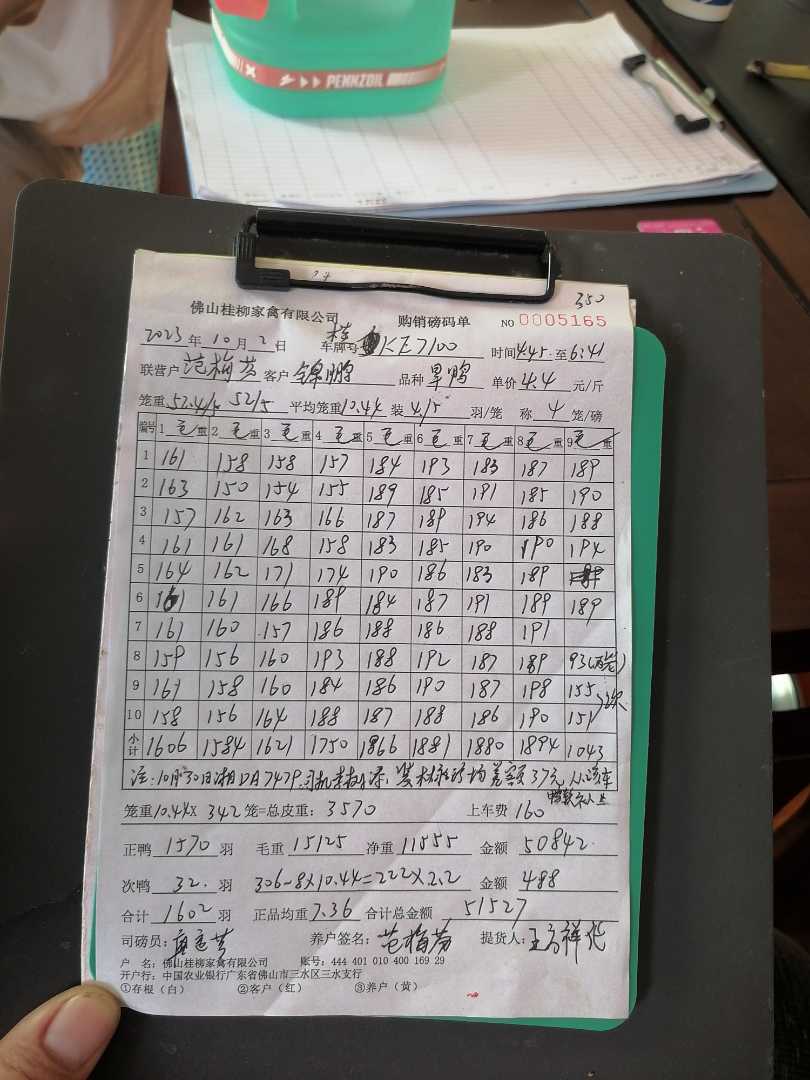 PENNZOIL
350
佛山桂柳家禽有限公司 购销磅码单 NO 0005165
2023年10月2日 车牌号 桂KE7100 时间4:45至6:41
联营户 范梅芬 客户 锦鹏 品种 旱鸭 单价 4.4 元/斤
笼重 52.4/5 52/5 平均笼重 10.44 装 4/5 羽/笼 称 4 笼/磅
编号 1 毛重 2 毛重 3 毛重 4 毛重 5 毛重 6 毛重 7 毛重 8 毛重 9 毛重
1 161 158 158 157 184 193 183 187 189
2 163 150 154 155 189 185 191 185 190
3 157 162 163 166 187 189 194 186 188
4 161 161 168 158 183 185 190 190 194
5 164 162 171 174 190 186 183 189
6 161 161 166 189 184 187 191 189 189
7 161 160 157 186 188 186 188 191
8 159 156 160 193 188 192 187 189 93(两笼)
9 161 158 160 184 186 190 187 198 155
10 158 156 164 188 187 188 186 190 151
小计 1606 1584 1621 1750 1866 1881 1880 1894 1043
注:10月30日湘DA7479司机 差额37元,从该车
笼重 10.44 X 342 笼=总皮重: 3570 上车费 160
正鸭 1570 羽 毛重 15125 净重 11555 金额 50842.
次鸭 32. 羽 306-8X10.44=222X2.2 金额 488
合计 1602 羽 正品均重 7.36 合计总金额 51527
司磅员: 养户签名: 范梅芬 提货人: 王
户 名: 佛山桂柳家禽有限公司 账号: 444 401 010 400 169 29
开户行: 中国农业银行广东省佛山市三水区三水支行
①存根(白) ②客户(红) ③养户(黄)